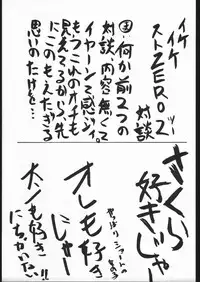 イケイケ
ストZERO2ッ
対談
何か前2つの
対談、内容無くて
イヤーンて感じ。
もうこれのオチも
見えてるから、先
にこのもえたぎる
思いのたけを…
さくら
好きじゃー
オレも好き
にゃー
やっぱり ショートの
女の子
大ノも好き
にちがいない!!